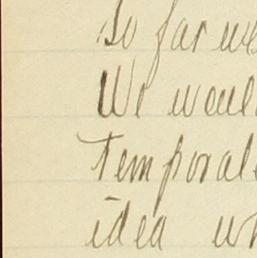 So far we
We woul
temporal
idea wh